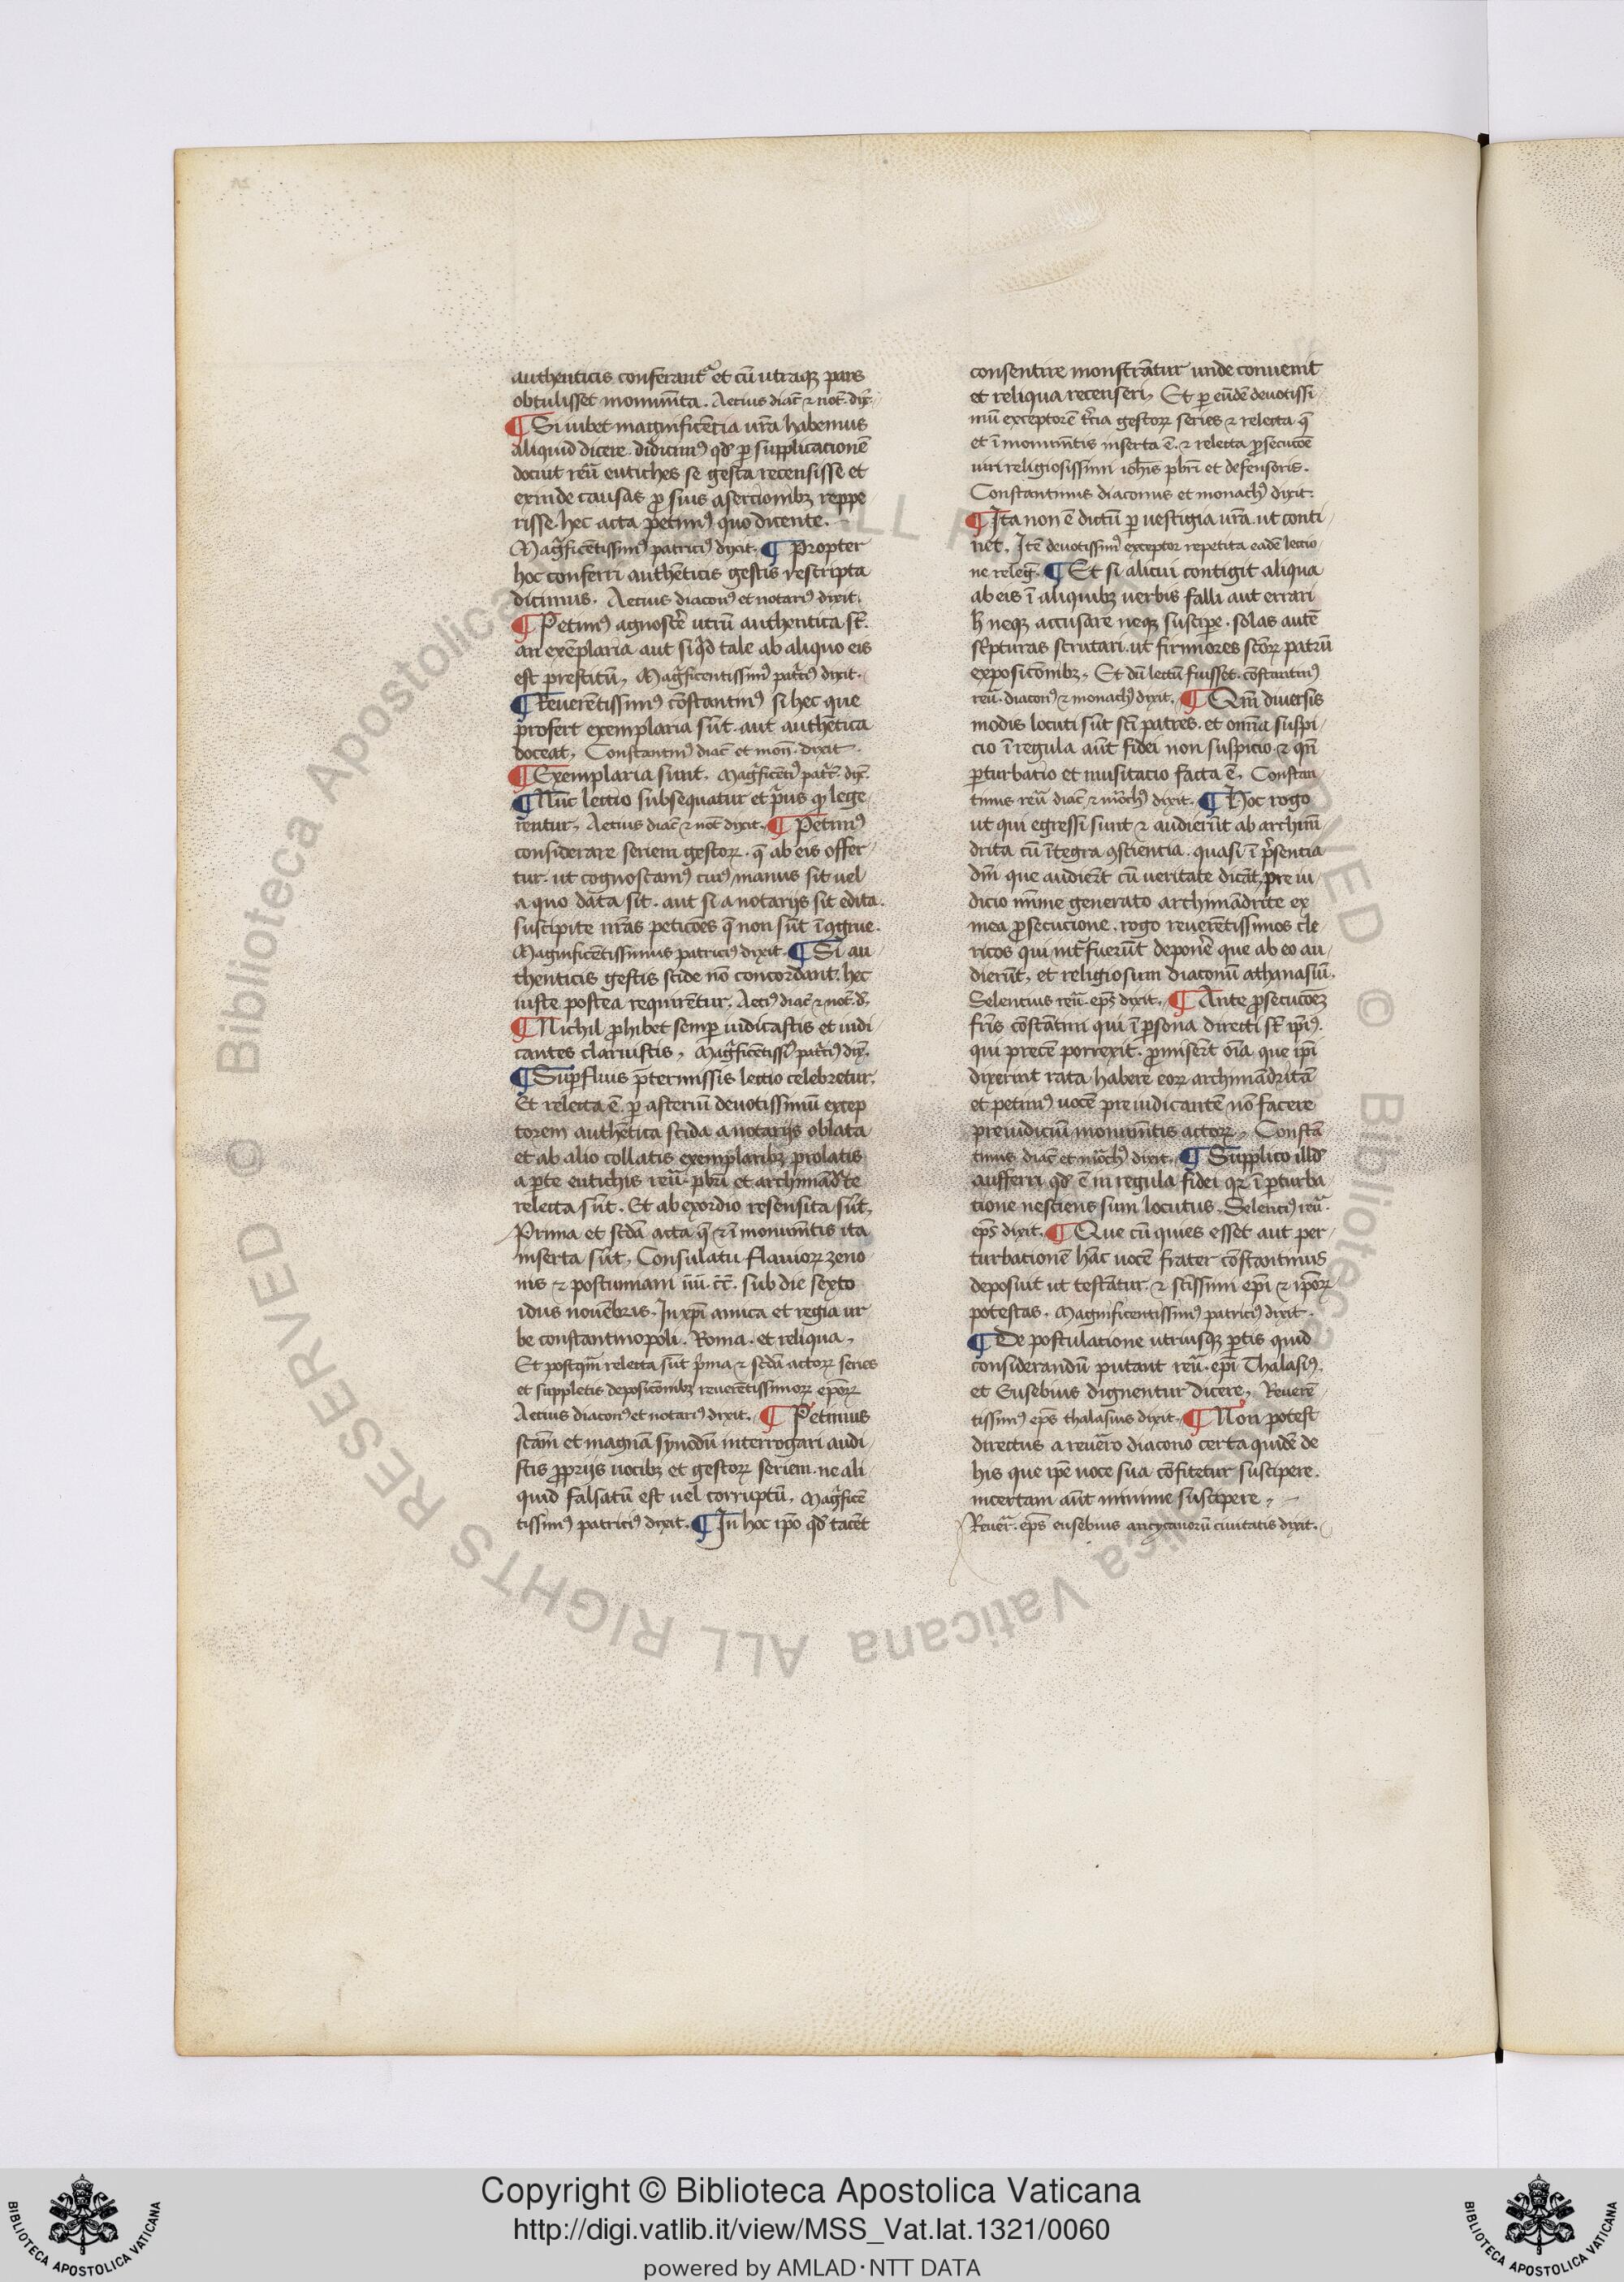 authenticis conferant᷑ et cū utraqꝫ pars
obtulisset monumēta. Aetius diac̄ ⁊ not̄. dix̄.
¶ Si iubet magnificētia ur̄a habemus
aliquid dicere. didicimꝰ qd̄ ꝑ supplicacionē
docuit reū eutiches se gesta recensisse et
exinde causas ꝓ suis asertionibꝫ reppe
risse. hec acta petimꝰ quo dicente.
Mag̃ficētissimꝰ patriciꝰ dixit. ¶ Propter
hoc conferri authēticis gestis rescripta
dicimus. Aetius diaconꝰ et notariꝰ dixit.
¶ Petimꝰ agnoscere utrū authentica st̄.
an exēplaria aut siqͥd tale ab aliquo eis
est prestitū, Mag̃ficentissimꝰ pat̃ciꝰ dixit.
¶ Reuerētissimꝰ cōstantinꝰ si hec que
profert exemplaria sūt. aut authētica
doceat, Constantinꝰ diac̄ et mon̄. dixit.
¶ Exemplaria sunt. Mag̃ficētꝰ patr̄c̄. dix̄.
¶ Nūc lectio subsequatur et p̃us qͣ lege
rentur, Aetius diac̄ ⁊ not̄ dixit. ¶ Petimꝰ
considerare seriem gestoꝝ. q̄ ab eis offer
tur. ut cognoscamꝰ cuiꝰ manus sit uel
a quo data sit. aut si a notarijs sit edita.
suscipite nr̄as peticōes q̄ non sūt īꝯgrue.
Magnificētissimus patriciꝰ dixit. ¶ Si au
thenticis gestis scide nō concordant. hec
iuste postea requirētur, Aetiꝰ diac̄ ⁊ not̄. d̄.
¶ Nichil ꝓhibet semꝑ iudicastis et iudi
cantes claruistis, Mag̃ficētissꝰ pat̃ciꝰ dix̄.
¶ Suꝑfluis p̄termissis lectio celebretur,
Et relecta ē. ꝑ asteriū deuotissimū excep
torem authētica scida a notarijs oblata
et ab alio collatis exemplaribꝫ prolatis
a ꝑte eutichis reū. pbr̄i et archimād͛te
relecta sūt. Et ab exordio resensita sūt,
Prima et scd̄a acta q̄ ⁊ ī monumētis ita
inserta sūt, Consulatu flauioꝝ zeno
nis ⁊ postumiani ūū. c̄c̄. sub die sexto
idus nouēbris. In xp̄i amica et regia ur
be constantinopoli. Roma. et reliqua,
Et postqͣm relecta sūt p̃ma ⁊ scd̄a actoꝝ series
et suppletis deposicōibꝫ reuerētissimoꝝ ep̄oꝝ
Aetius diaconꝰ et notariꝰ dixit, ¶ Petimus
scām et magnā synodū interrogari audi
stis ꝓprijs uocibꝫ et gestoꝝ seriem. ne ali
quid falsatū est uel corruptū, Mag̃ficē
tissimꝰ patriciꝰ dixit. ¶ In hoc ip̄o qd̄ tacēt
consentire monstrātur unde conuenit
et reliqua recenseri, Et ꝑ eūdē deuotissi
mū exceptorē t̄cia gestoꝝ series ⁊ relecta q̄
et ī monumētis inserta ē. ⁊ relecta ꝓsecucōe
uiri religiosissimi ioh̄is pbr̄i et defensoris.
Constantinus diaconus et monachꝰ dixit.
¶ Ita non ē dictū ꝑ uestigia ur̄a. ut conti
net. Itē deuotissimꝰ exceptor repetita eadē lectio
ne releḡ. ¶ Et si alicui contigit aliqua
ab eis ī aliquibꝫ uerbis falli aut errari
h̄ neqꝫ accusare neqꝫ susciꝑe. solas autē
sc̃pturas scrutari. ut firmiores scōꝝ patrū
exposicōibꝫ, Et dū lectū fuisset. cōstantinꝰ
reū. diaconꝰ ⁊ monachꝰ dixit, ¶ Qm̄ diuersis
modis locuti sūt sc̄i patres. et om̄ia suspi
cio ī regula aūt fidei non suspicio. ⁊ qn̄
ꝑturbatio et musitacio facta ē, Constan
tinus reū diac̄ ⁊ mōchꝰ dixit. ¶ Hoc rogo
ut qui egressi sunt ⁊ audierūt ab archim̄
drita cū ītegra ꝯscientia. quasi ī p̃sentia
dn̄i que audierūt cū ueritate dicāt, pre iu
dicio mīme generato archimādrite ex
mea ꝓsecucione. rogo reuerētissimos cle
ricos qui mt̄fuerūt deponēe que ab eo au
dierūt, et religiosum diaconū athanasiū.
Selencius reū. ep̄s dixit, ¶ Ante ꝓsecucōeꝫ
fr̄is cōstātini qui ī ꝑsona directi st̄ ip̄iꝰ.
qui precē porrexit. ꝓmiserūt oīa que ip̄i
dixerint rata habere eoꝝ archimādritā
et petimꝰ uocē preiudicantē nō facere
preiudiciū monumētis actoꝝ, Constā
tinus diac̄ et mōchꝰ dixit, ¶ Supplico illd̄
aufferri qd̄ ē in regula fidei qꝛ ī ꝑturba
tione nesciens sum locutus. Selenciꝰ reū.
ep̄s dixit. ¶ Que cū quies esset aut per
turbationē hāc uocē frater cōstantinus
deposuit ut testātur. ⁊ sc̄issimi ep̄i ⁊ ip̄oꝝ
potestas. Magnificentissimꝰ patriciꝰ dixit.
¶ De postulatione utriusqꝫ ꝑtis quid
considerandū putant reū. ep̄i Thalasiꝰ,
et Eusebius dignentur dicere, Reuerē
tissimꝰ ep̄s thalasius dixit. ¶ Non potest
directus a reuer̄o diacono certa quidē de
his que ip̄e uoce sua cōfitetur suscipere.
incertam aūt minime suscipere,
Reuer̄. ep̄s eusebius ancycanorū ciuitatis dixit.
© Biblioteca Apostolica Vaticana ALL RIGHTS RESERVED © Biblioteca Apostolica Vaticana ALL RIGHTS RESERVED
Copyright © Biblioteca Apostolica Vaticana
http://digi.vatlib.it/view/MSS_Vat.lat.1321/0060
powered by AMLAD·NTT DATA
BIBLIOTECA APOSTOLICA VATICANA
BIBLIOTECA APOSTOLICA VATICANA